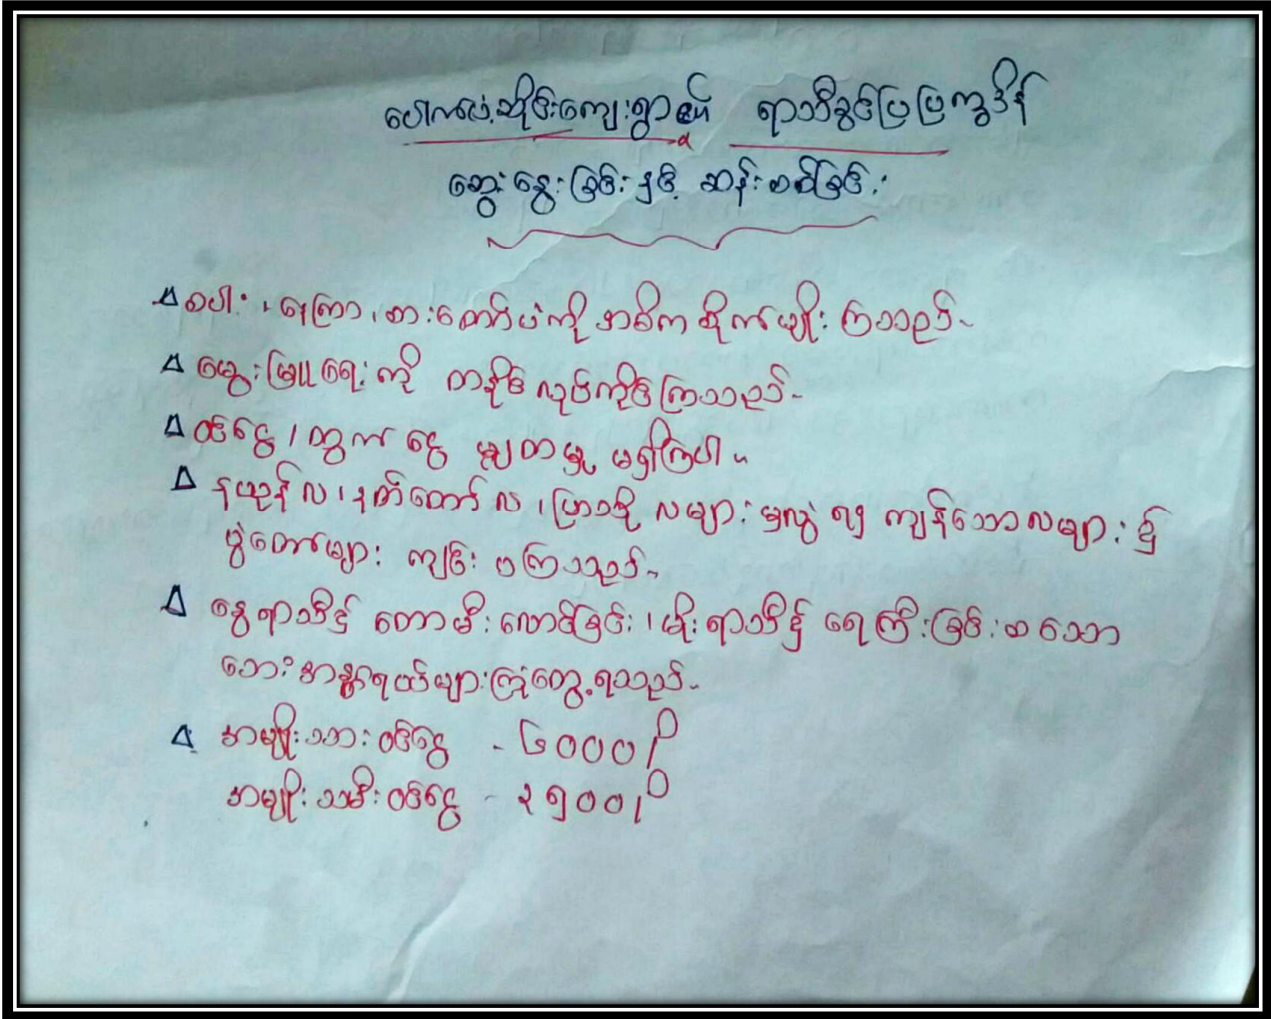 ပေါက်ပံ့ဆိုင်းကျေးရွာ၏ ရာသီခွင်ပြပြက္ခဒိန်
ဆွေးနွေးခြင်းနှင့် ဆန်းစစ်ခြင်း
စပါး၊ နေကြာ၊ စားတော်ပဲကို အဓိက စိုက်ပျိုးကြသည်။
မွေးမြူရေးကို တနိုင် လုပ်ကိုင်ကြသည်။
ဝင်ငွေ၊ ထွက်ငွေ မျှတမှု မရှိကြပါ။
နယုန်လ၊ နတ်တော်လ၊ ပြာသို လများ မှလွဲ ၍ ကျန်သောလများ ၌
ပွဲတော်များ ကျင်းပကြသည်။
နွေရာသီ၌ တောမီးလောင်ခြင်း၊ မိုးရာသီ၌ ရေကြီးခြင်း စသော
ဘေးအန္တရာယ်များကြုံတွေ့ရသည်။
အမျိုးသားဝင်ငွေ - ၆၀၀၀/-
အမျိုးသမီးဝင်ငွေ - ၃၅၀၀/-